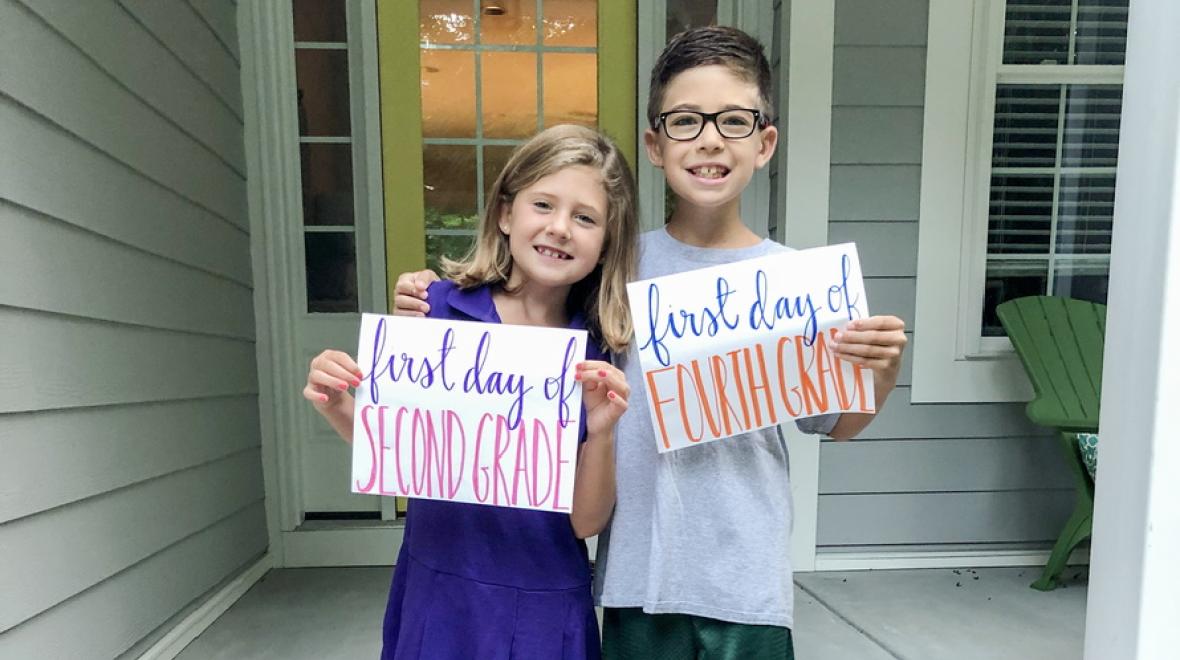 first day of
SECOND GRADE
first day of
FOURTH GRADE